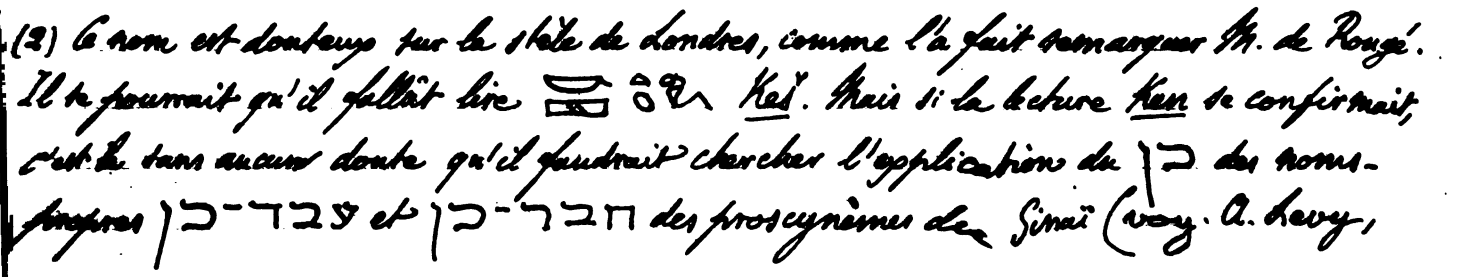 (2) Ce nom est douteux sur la stèle de Londres, comme l'a fait remarquer M. de Rougé.
Il se pourrait qu'il fallût lire Keš. Mais si la lecture Ken se confirmait,
c'est là sans aucun doute qu'il faudrait chercher l'explication du כן des noms-
propres עבד־כן et חבר־כן des proscynèmes de Sinaï (voy. A. Levy,